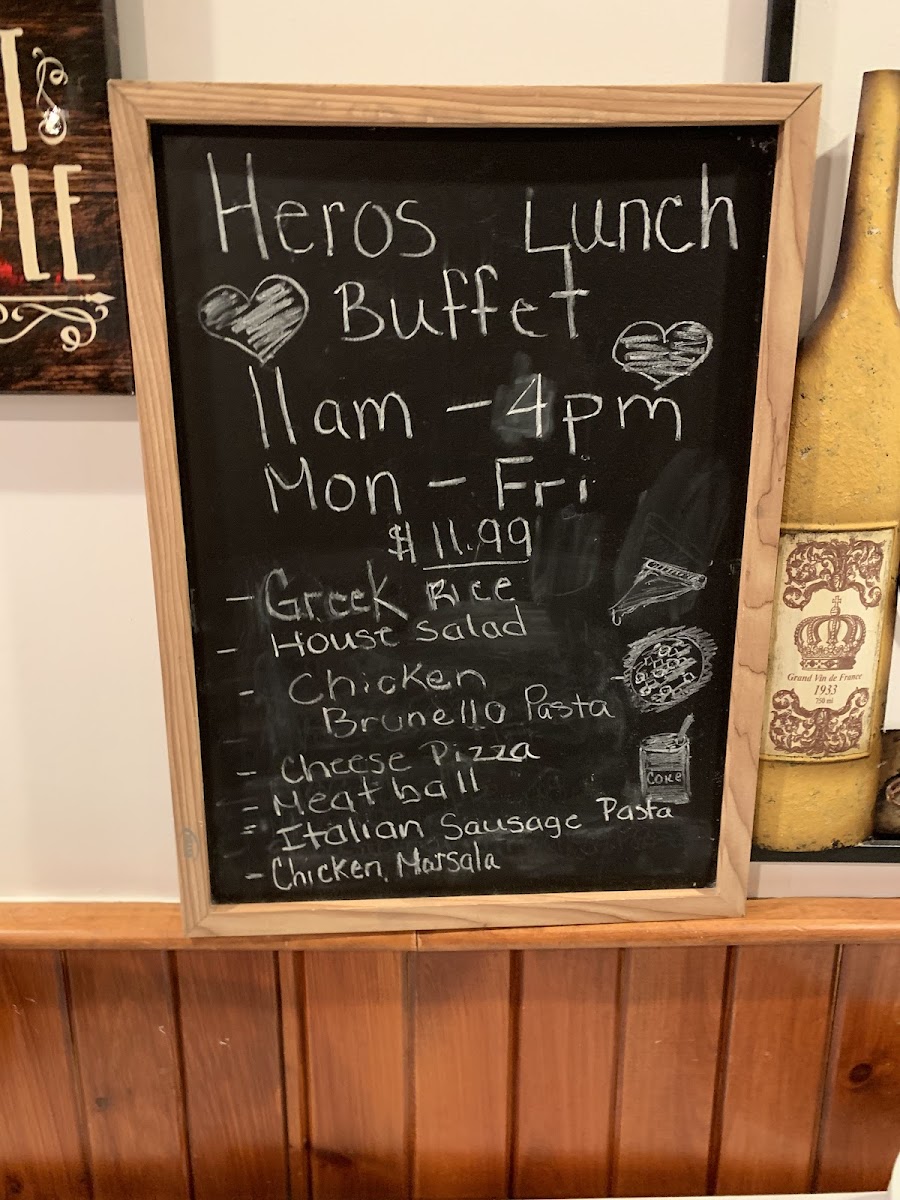 Heros Lunch
Buffet
11am - 4pm
Mon - Fri
$11.99
- Greek Rice
- House Salad
- Chicken
Brunello Pasta
- Cheese Pizza
- Meatball
- Italian Sausage Pasta
- Chicken Marsala
COKE
Grand Vin de France
1933
750 ml